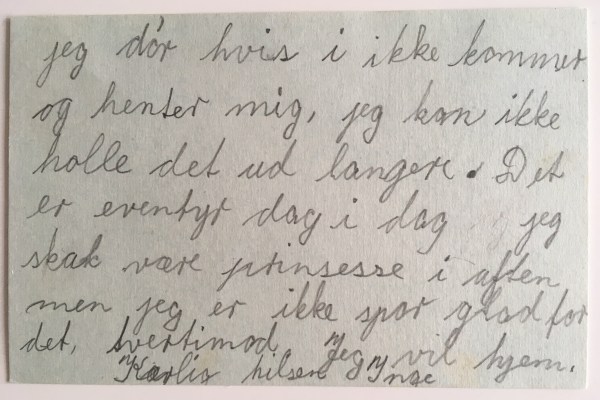 jeg dór hvis i ikke kommer
og henter mig, jeg kan ikke
holle det ud langere. Det
er eventyr dag i dag jeg
skak være prinsesse i aften
men jeg er ikke spor glad for
det, tvertimod Jeg vil hjem.
Kærlig hilsen Inge